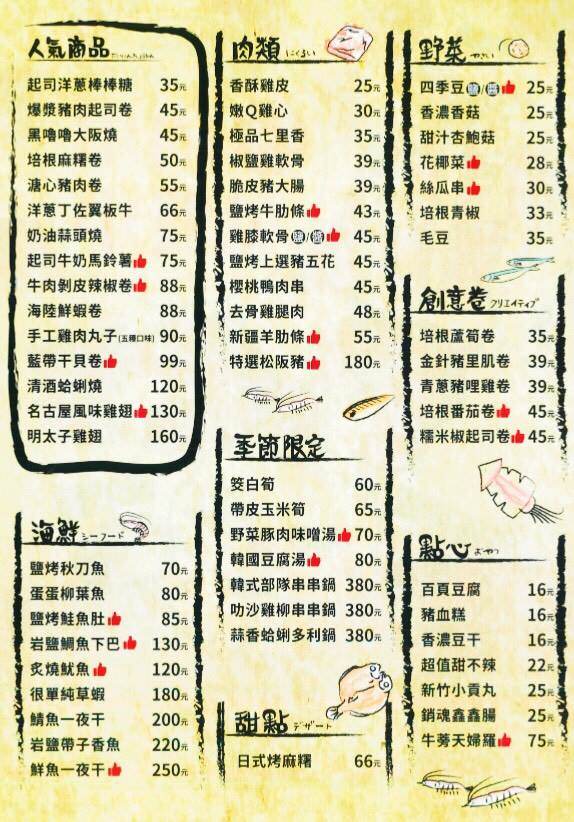 人氣商品
起司洋蔥棒棒糖 35元
爆漿豬肉起司卷 45元
黑嚕嚕大阪燒 45元
培根麻糬卷 50元
溏心豬肉卷 55元
洋蔥丁佐翼板牛 66元
奶油蒜頭燒 75元
起司牛奶馬鈴薯 75元
牛肉剝皮辣椒卷 88元
海陸鮮蝦卷 88元
手工雞肉丸子(五種口味) 90元
藍帶干貝卷 99元
清酒蛤蜊燒 120元
名古屋風味雞翅 130元
明太子雞翅 160元
海鮮 シーフード
鹽烤秋刀魚 70元
蛋蛋柳葉魚 80元
鹽烤鮭魚肚 85元
岩鹽鯛魚下巴 130元
炙燒魷魚 120元
很單純草蝦 180元
鯖魚一夜干 200元
岩鹽帶子香魚 220元
鮮魚一夜干 250元
肉類 にくるい
香酥雞皮 25元
嫩Q雞心 30元
極品七里香 35元
椒鹽雞軟骨 39元
脆皮豬大腸 39元
鹽烤牛肋條 43元
雞膝軟骨 鹽/醬 45元
鹽烤上選豬五花 45元
櫻桃鴨肉串 45元
去骨雞腿肉 48元
新疆羊肋條 55元
特選松阪豬 180元
季節限定
筊白筍 60元
帶皮玉米筍 65元
野菜豚肉味噌湯 70元
韓國豆腐湯 80元
韓式部隊串串鍋 380元
叻沙雞柳串串鍋 380元
蒜香蛤蜊多利鍋 380元
甜點 デザート
日式烤麻糬 66元
野菜 やさい
四季豆 鹽/醬 25元
香濃香菇 25元
甜汁杏鮑菇 25元
花椰菜 28元
絲瓜串 30元
培根青椒 33元
毛豆 35元
創意卷 クリエイティブ
培根蘆筍卷 35元
金針豬里肌卷 39元
青蔥豬哩雞卷 39元
培根番茄卷 45元
糯米椒起司卷 45元
點心 おやつ
百頁豆腐 16元
豬血糕 16元
香濃豆干 16元
超值甜不辣 22元
新竹小貢丸 25元
銷魂鑫鑫腸 25元
牛蒡天婦羅 75元